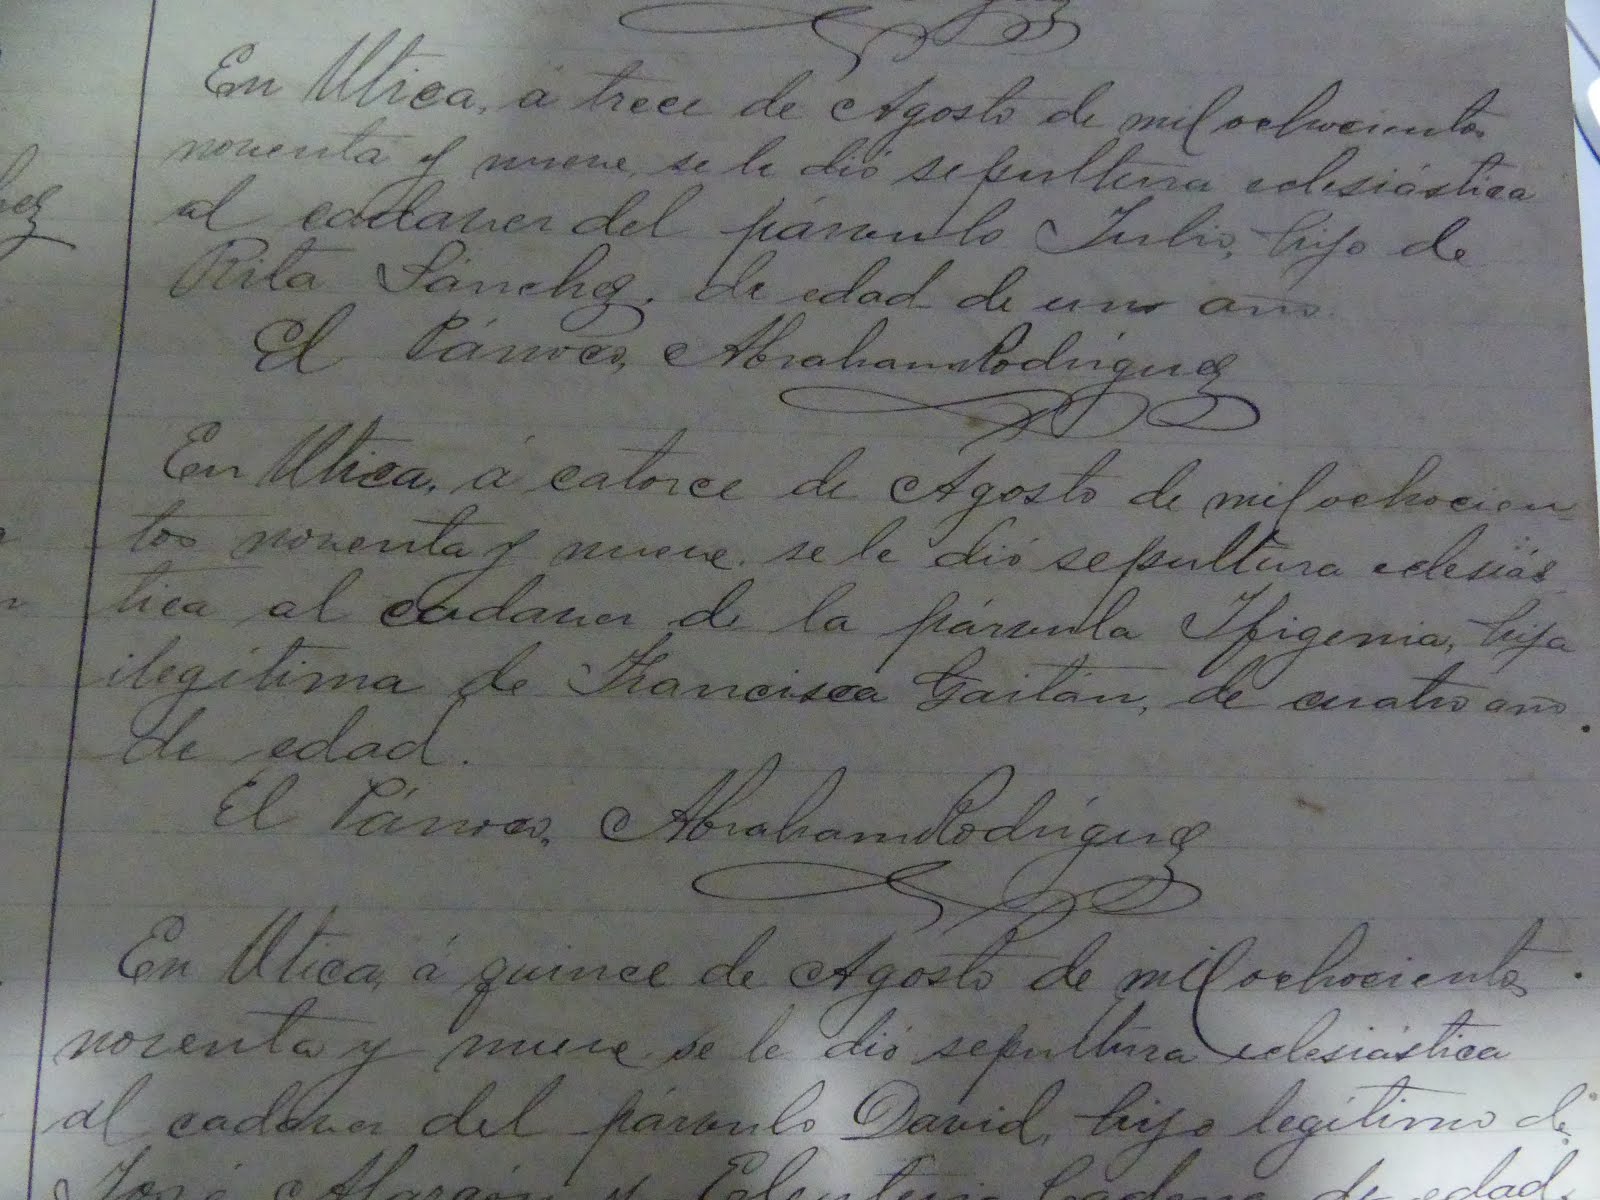 En Utica, á trece de Agosto de mil ochocientos
noventa y nueve, se le dió sepultura eclesiástica
al cadaver del párvulo Julio, hijo de
Rita Sánchez, de edad de uno año.
El Párroco, Abraham Rodríguez
En Utica, á catorce de Agosto de mil ochocien-
tos noventa y nueve, se le dió sepultura eclesiás-
tica al cadaver de la párvula Ifigenia, hija
ilegítima de Francisca Gaitán, de cuatro años
de edad.
El Párroco, Abraham Rodríguez
En Utica, á quince de Agosto de mil ochocientos
noventa y nueve se le dió sepultura eclesiástica
al cadaver del párvulo David, hijo legítimo de
José Alarcón y Cadena de edad